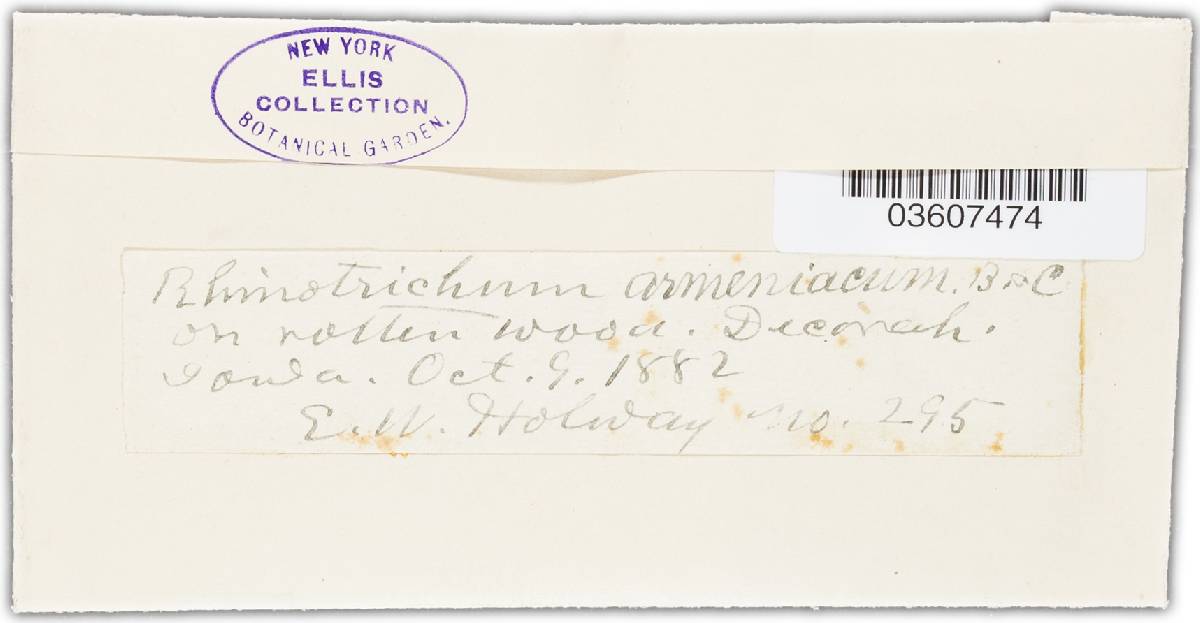 NEW YORK
ELLIS
COLLECTION
BOTANICAL GARDEN.
03607474
Rhinotrichum armeniacum. B & C
on rotten wood. Decorah.
Iowa. Oct. 9. 1882
E. W. Holway no. 295